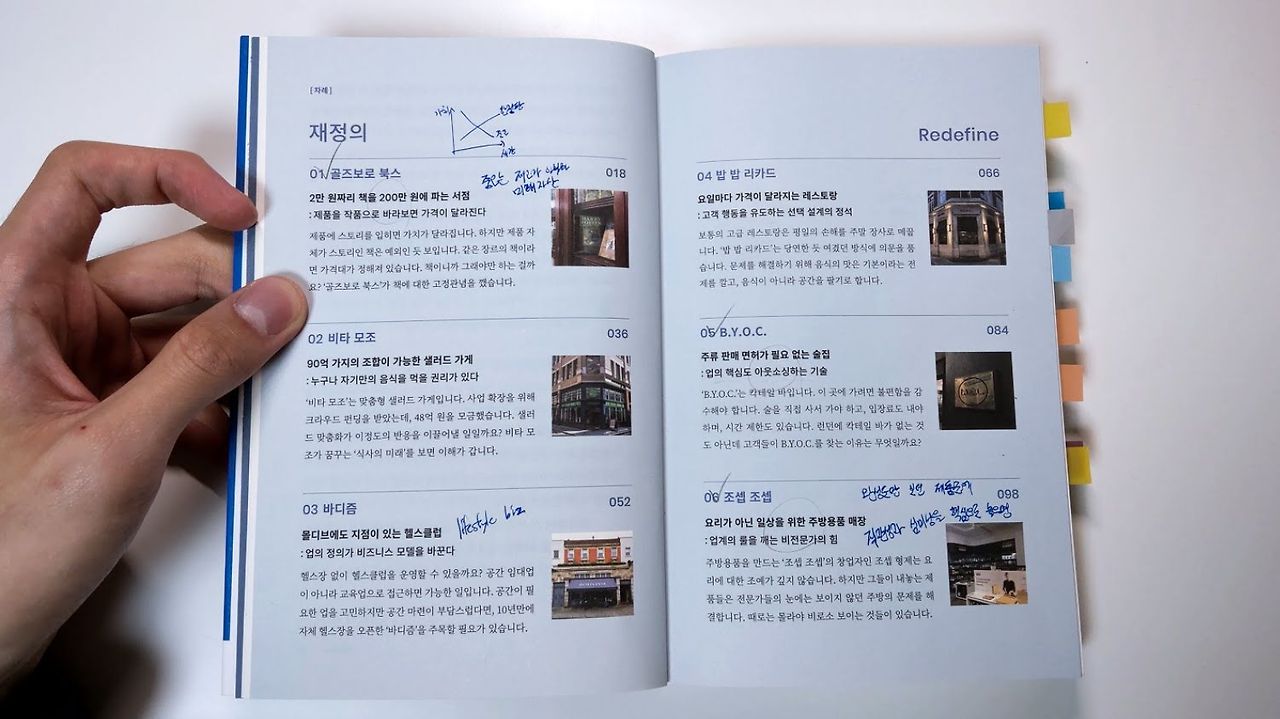 [차례]
재정의
가치
시간
01 골즈보로 북스
018
2만 원짜리 책을 200만 원에 파는 서점
: 제품을 작품으로 바라보면 가격이 달라진다
제품에 스토리를 입히면 가치가 달라집니다. 하지만 제품 자
체가 스토리인 책은 예외인 듯 보입니다. 같은 장르의 책이라
면 가격대가 정해져 있습니다. 책이니까 그래야만 하는 걸까
요? ‘골즈보로 북스’가 책에 대한 고정관념을 깼습니다.
02 비타 모조
036
90억 가지의 조합이 가능한 샐러드 가게
: 누구나 자기만의 음식을 먹을 권리가 있다
‘비타 모조’는 맞춤형 샐러드 가게입니다. 사업 확장을 위해
크라우드 펀딩을 받았는데, 48억 원을 모금했습니다. 샐러
드 맞춤화가 이정도의 반응을 이끌어낼 일일까요? 비타 모
조가 꿈꾸는 ‘식사의 미래’를 보면 이해가 갑니다.
03 바디즘
052
lifestyle biz
몰디브에도 지점이 있는 헬스클럽
: 업의 정의가 비즈니스 모델을 바꾼다
헬스장 없이 헬스클럽을 운영할 수 있을까요? 공간 임대업
이 아니라 교육업으로 접근하면 가능한 일입니다. 공간이 필
요한 업을 고민하지만 공간 마련이 부담스럽다면, 10년만에
자체 헬스장을 오픈한 ‘바디즘’을 주목할 필요가 있습니다.
Redefine
04 밥 밥 리카드
066
요일마다 가격이 달라지는 레스토랑
: 고객 행동을 유도하는 선택 설계의 정석
보통의 고급 레스토랑은 평일의 손해를 주말 장사로 메꿉
니다. ‘밥 밥 리카드’는 당연한 듯 여겼던 방식에 의문을 품
습니다. 문제를 해결하기 위해 음식의 맛은 기본이라는 전
제를 깔고, 음식이 아니라 공간을 팔기로 합니다.
05 B.Y.O.C.
084
주류 판매 면허가 필요 없는 술집
: 업의 핵심도 아웃소싱하는 기술
‘B.Y.O.C.’는 칵테일 바입니다. 이 곳에 가려면 불편함을 감
수해야 합니다. 술을 직접 사서 가야 하고, 입장료도 내야
하며, 시간 제한도 있습니다. 런던에 칵테일 바가 없는 것
도 아닌데 고객들이 B.Y.O.C.를 찾는 이유는 무엇일까요?
06 조셉 조셉
098
요리가 아닌 일상을 위한 주방용품 매장
: 업계의 룰을 깨는 비전문가의 힘
주방용품을 만드는 ‘조셉 조셉’의 창업자인 조셉 형제는 요
리에 대한 조예가 깊지 않습니다. 하지만 그들이 내놓는 제
품들은 전문가들의 눈에는 보이지 않던 주방의 문제를 해
결합니다. 때로는 몰라야 비로소 보이는 것들이 있습니다.